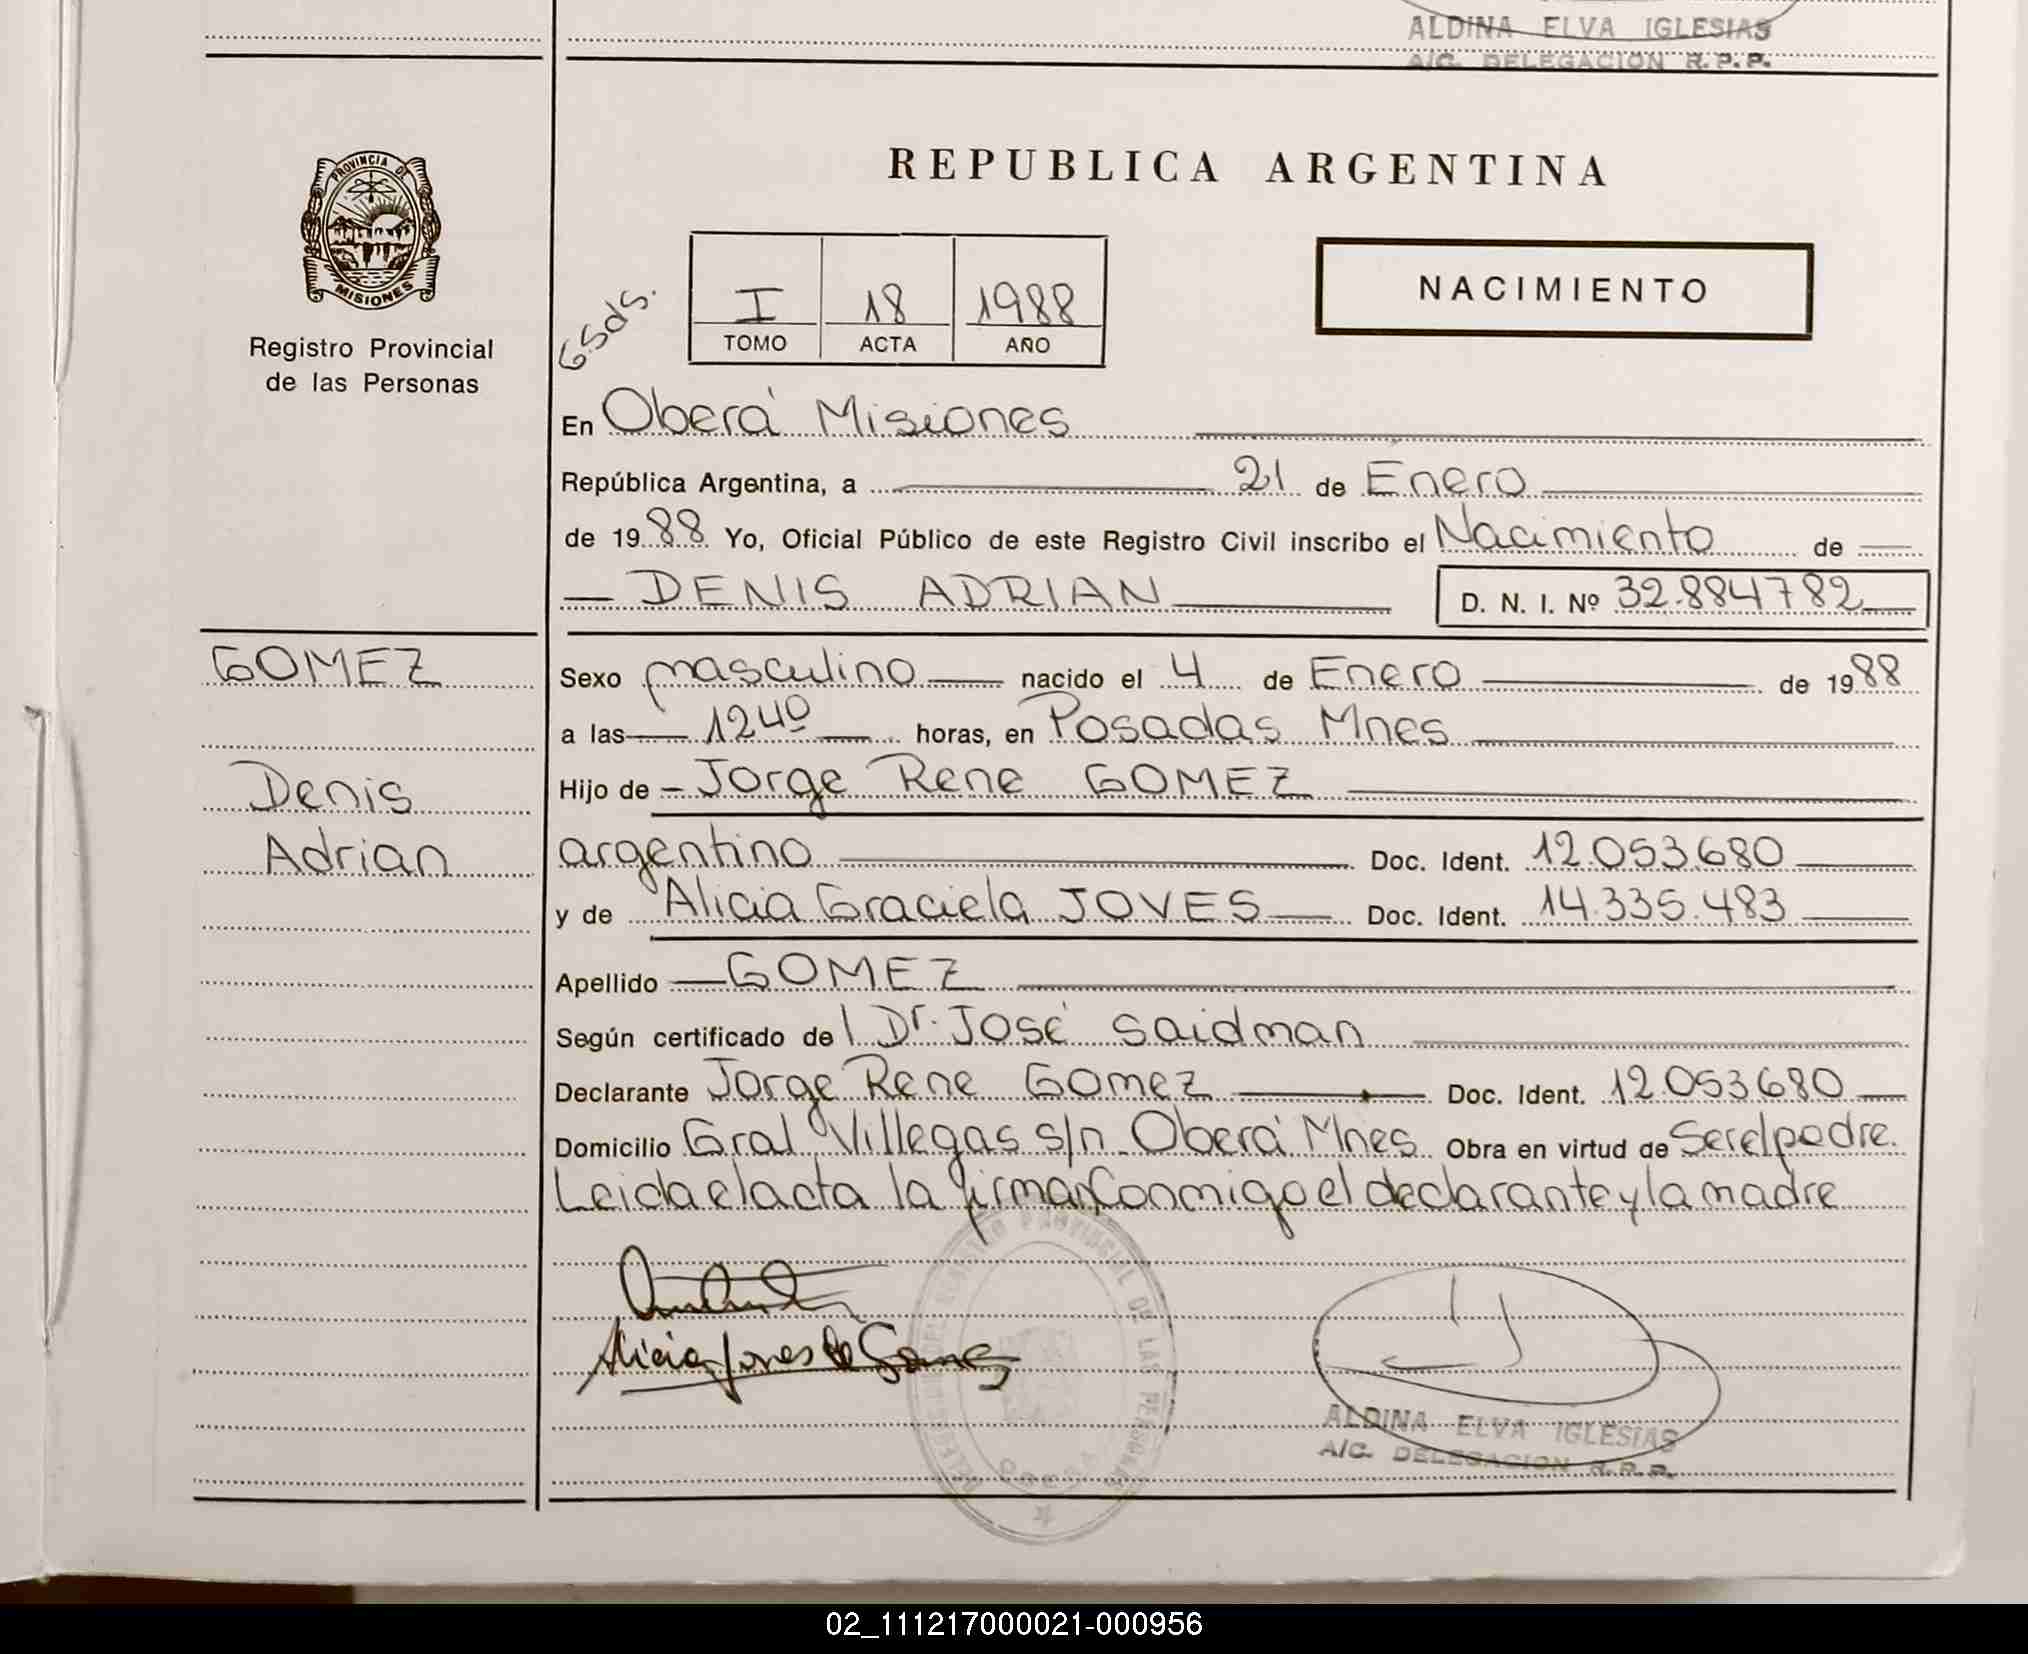 ALDINA ELVA IGLESIAS
A/C. DELEGACION R.P.P.
PROVINCIA DE
MISIONES
Registro Provincial
de las Personas
REPUBLICA ARGENTINA
NACIMIENTO
I 18 1988
TOMO ACTA AÑO
En Oberá Misiones
República Argentina, a 21 de Enero
de 1988 Yo, Oficial Público de este Registro Civil inscribo el Nacimiento de
DENIS ADRIAN D. N. I. Nº 32.884782
GOMEZ
Denis
Adrian
Sexo masculino nacido el 4 de Enero de 1988
a las 12 40 horas, en Posadas Mnes
Hijo de - Jorge Rene GOMEZ
argentino Doc. Ident. 12.053.680
y de Alicia Graciela JOVES Doc. Ident. 14.335.483
Apellido GOMEZ
Según certificado de l Dr. José Saidman
Declarante Jorge Rene Gomez Doc. Ident. 12.053.680
Domicilio Gral Villegas s/n - Oberá Mnes. Obra en virtud de Ser el padre.
Leida el acta la firman Conmigo el declarante y la madre
Alicia Joves de Gomez
REGISTRO PROVINCIAL DE LAS PERSONAS
ALDINA ELVA IGLESIAS
A/C. DELEGACION R.P.P.
02_111217000021-000956